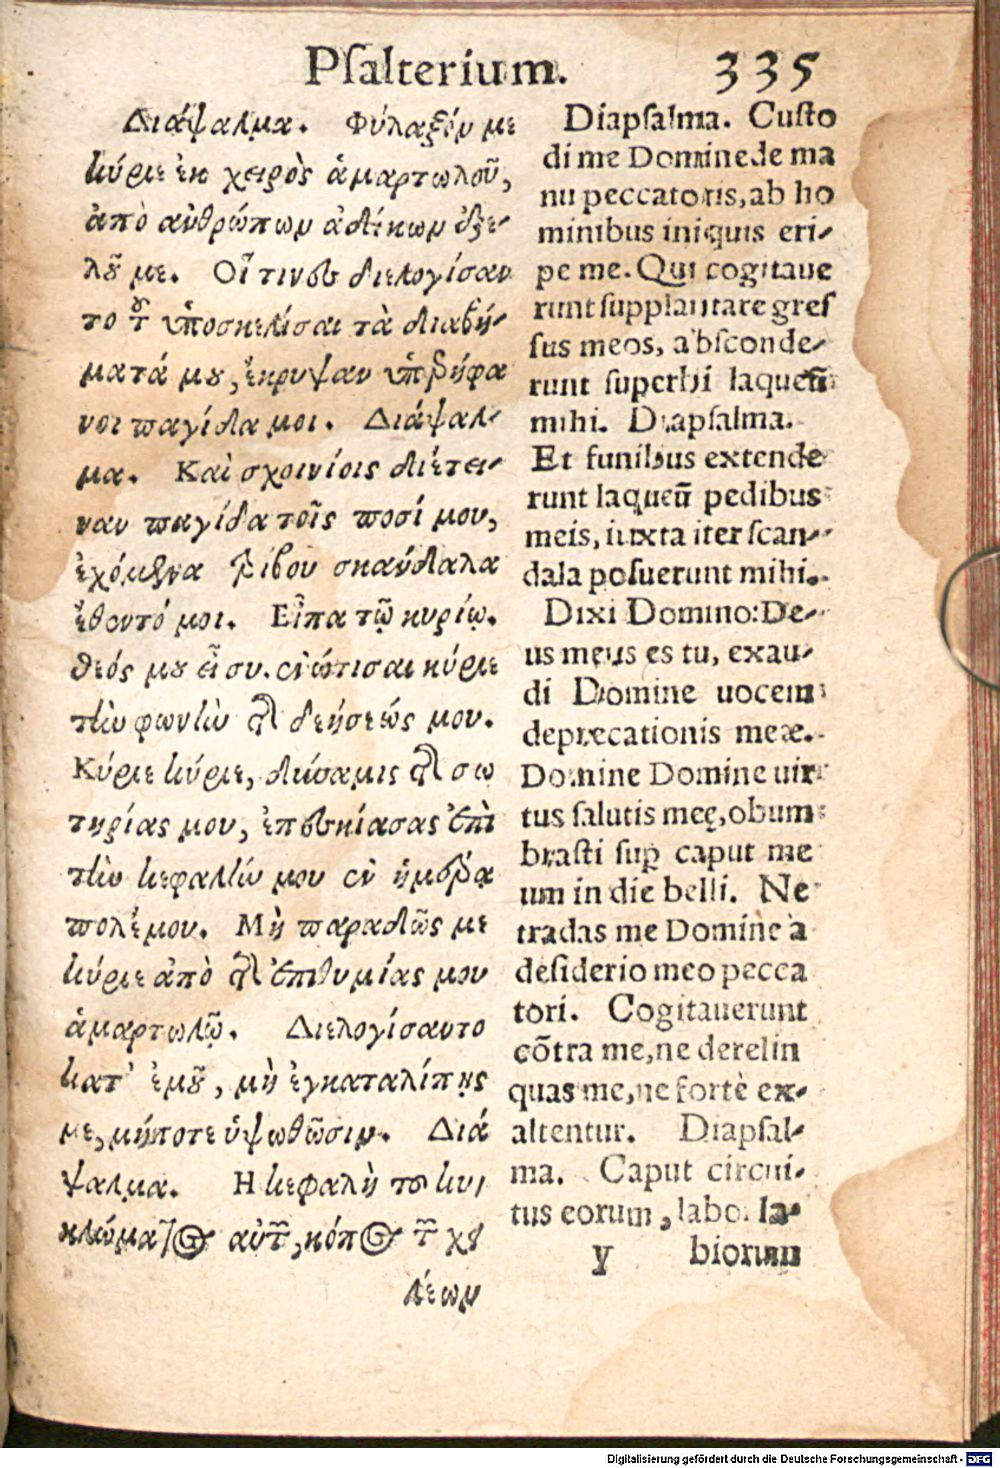 Psalterium. 335
Διάψαλμα. Φύλαξόν με
κύριε ἐκ χειρὸς ἁμαρτωλοῦ,
ἀπὸ ἀνθρώπων ἀδίκων ἐξε-
λοῦ με. Οἵ τινες διελογίσαν
το τοῦ ὑποσκελίσαι τὰ διαβή-
ματά μου, ἔκρυψαν ὑπερήφα
νοι παγίδα μοι. Διάψαλ-
μα. Καὶ σχοινίοις διέτει-
ναν παγίδα τοῖς ποσί μου,
ἐχόμενα τρίβου σκάνδαλα
ἔθοντό μοι. Εἶπα τῷ κυρίῳ.
θεός μου εἶ συ. ἐνώτισαι κύριε
τὴν φωνὴν τῆς δεήσεώς μου.
Κύριε κύριε, δύναμις τῆς σω
τηρίας μου, ἐπεσκίασας ἐπὶ
τὴν κεφαλήν μου ἐν ἡμέρᾳ
πολέμου. Μὴ παραδῷς με
κύριε ἀπὸ τῆς ἐπιθυμίας μου
ἁμαρτωλῷ. Διελογίσαντο
κατ' ἐμοῦ, μὴ ἐγκαταλίπῃς
με, μήποτε ὑψωθῶσιν. Διά
ψαλμα. Η κεφαλὴ τοῦ κυ-
κλώματος αὐτῶν, κόπος τῶν χει
λέων
Diapsalma. Custo
di me Domine de ma
nu peccatoris, ab ho
minibus iniquis eri-
pe me. Qui cogitaue
runt supplantare gres
sus meos, absconde-
runt superbi laqueū
mihi. Diapsalma.
Et funibus extende
runt laqueū pedibus
meis, iuxta iter scan-
dala posuerunt mihi.
Dixi Domino: De-
us meus es tu, exau-
di Domine uocem
deprecationis meæ.
Domine Domine uir
tus salutis meę, obum
brasti sup caput me
um in die belli. Ne
tradas me Domine à
desiderio meo pecca
tori. Cogitauerunt
cōtra me, ne derelin
quas me, ne fortè ex-
altentur. Diapsal-
ma. Caput circui-
tus eorum, labor la-
y biorum
Digitalisierung gefördert durch die Deutsche Forschungsgemeinschaft - DFG